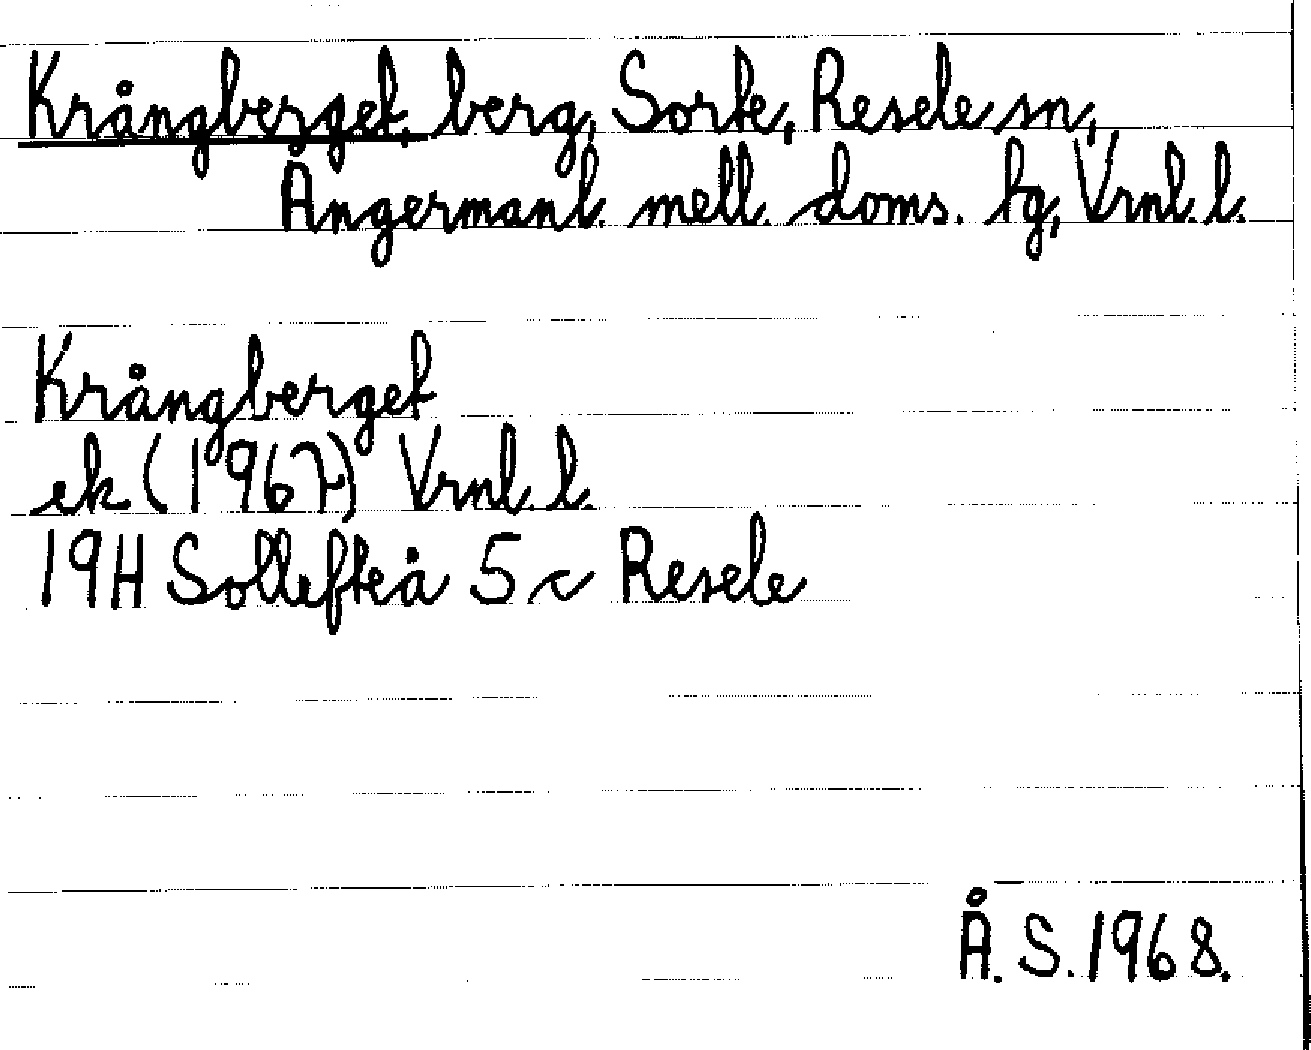 Krångberget, berg, Sorte, Resele sn,
Ångermanl. mell. doms. tg, Vrnl. l.
Krångberget
ek (1967) Vrnl. l.
19H Sollefteå 5 c Resele
Å. S. 1968.